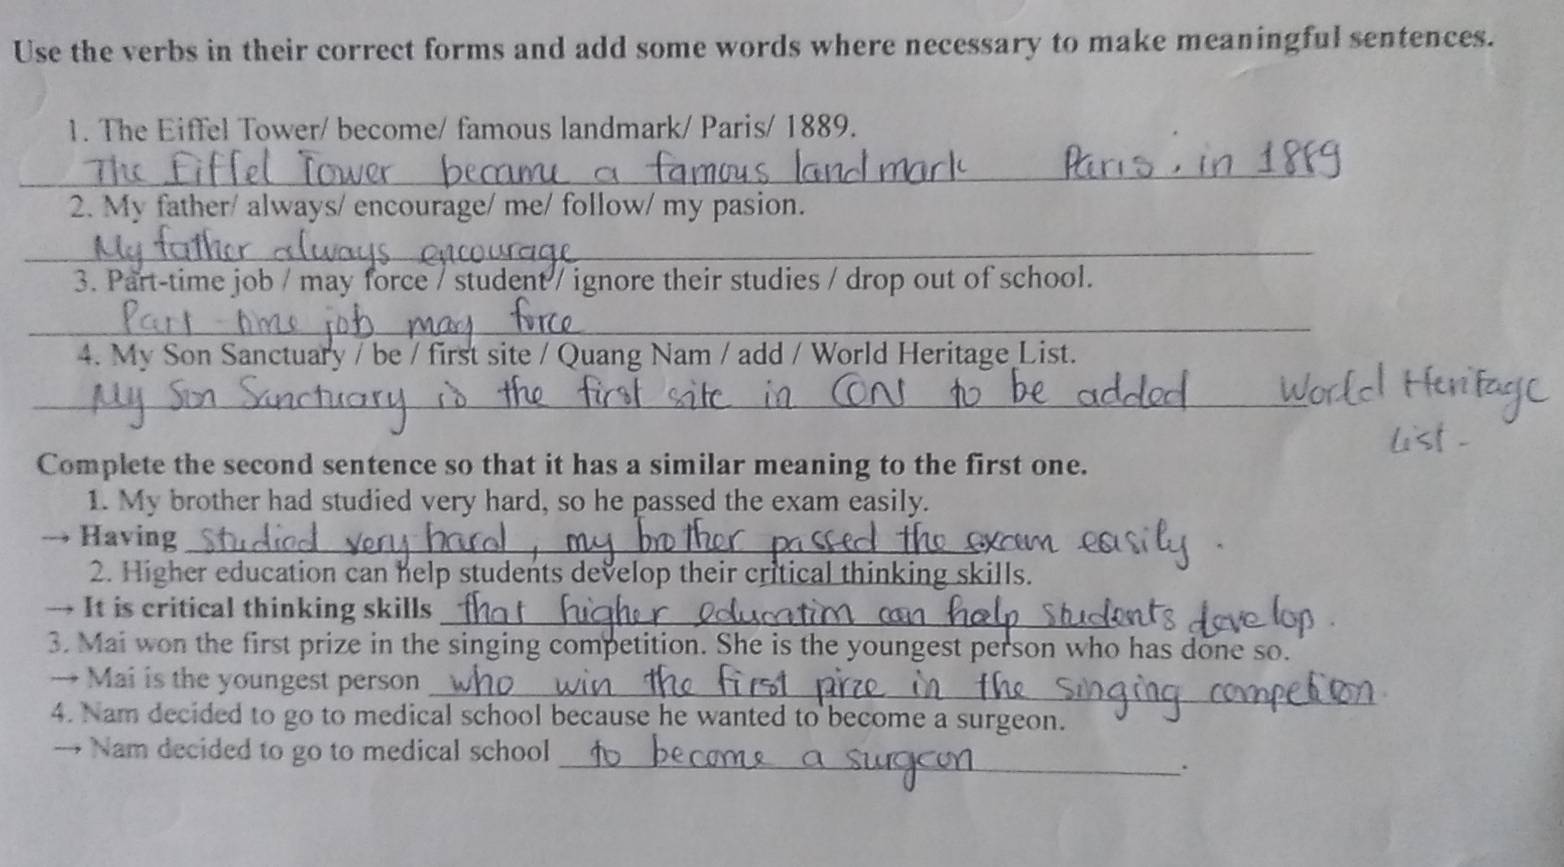 Use the verbs in their correct forms and add some words where necessary to make meaningful sentences.
1. The Eiffel Tower/ become/ famous landmark/ Paris/ 1889.
The Eiffel Tower became a famous landmark Paris. in 1889
2. My father/ always/ encourage/ me/ follow/ my pasion.
My father always encourage
3. Part-time job / may force / student / ignore their studies / drop out of school.
Part-time job may force
4. My Son Sanctuary / be / first site / Quang Nam / add / World Heritage List.
My Son Sanctuary is the first site in to be added World Heritage
List.
Complete the second sentence so that it has a similar meaning to the first one.
1. My brother had studied very hard, so he passed the exam easily.
→ Having studied very hard, my brother passed the exam easily.
2. Higher education can help students develop their critical thinking skills.
→ It is critical thinking skills that higher education can help students develop.
3. Mai won the first prize in the singing competition. She is the youngest person who has done so.
→ Mai is the youngest person who win the first pirze in the singing competion.
4. Nam decided to go to medical school because he wanted to become a surgeon.
→ Nam decided to go to medical school to become a surgeon.